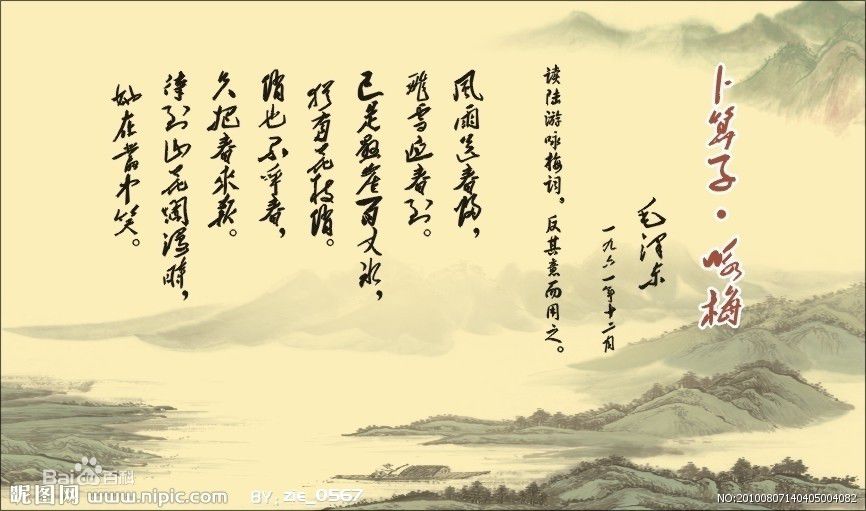 卜算子·咏梅
毛泽东
一九六一年十二月
读陆游咏梅词，反其意而用之。
风雨送春归，
飞雪迎春到。
已是悬崖百丈冰，
犹有花枝俏。
俏也不争春，
只把春来报。
待到山花烂漫时，
她在丛中笑。
Bai百科
昵图网 www.nipic.com BY: zie_0567
NO:20100807140405004082